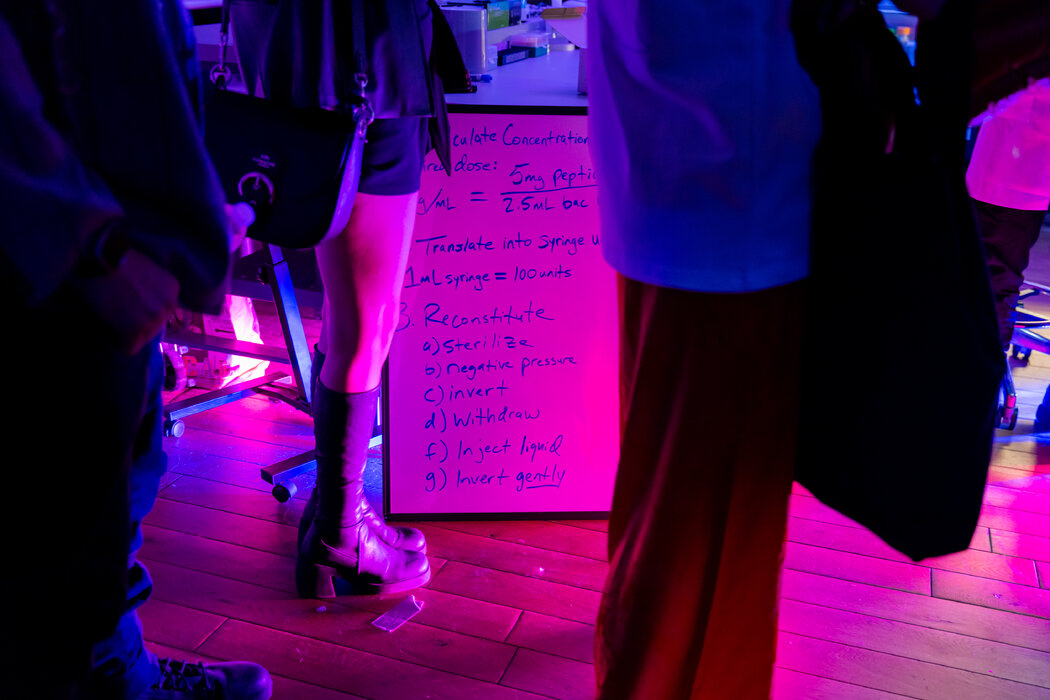 culate Concentration
dose:
5mg peptic
g/mL = 2.5mL bac
Translate into Syringe u
1mL syringe = 100units
3. Reconstitute
a) Sterilize
b) negative pressure
c) invert
d) Withdraw
f) Inject liquid
g) Invert gently